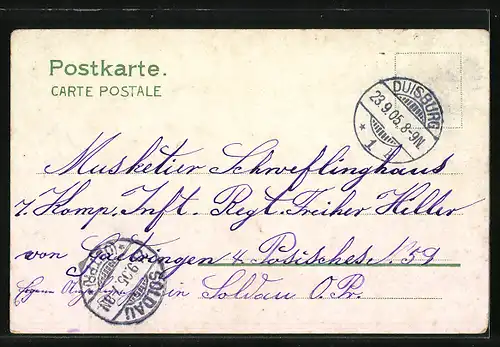 Postkarte.
CARTE POSTALE
DUISBURG
23.9.05.8-9N.
* 1
Musketier Schweflinghaus
7. Komp. Inft. Regt. Freiher Hiller
von Gaertringen 4 Posisches N. 59
in Soldau O. Pr.
SOLDAU
(OSTPR.)